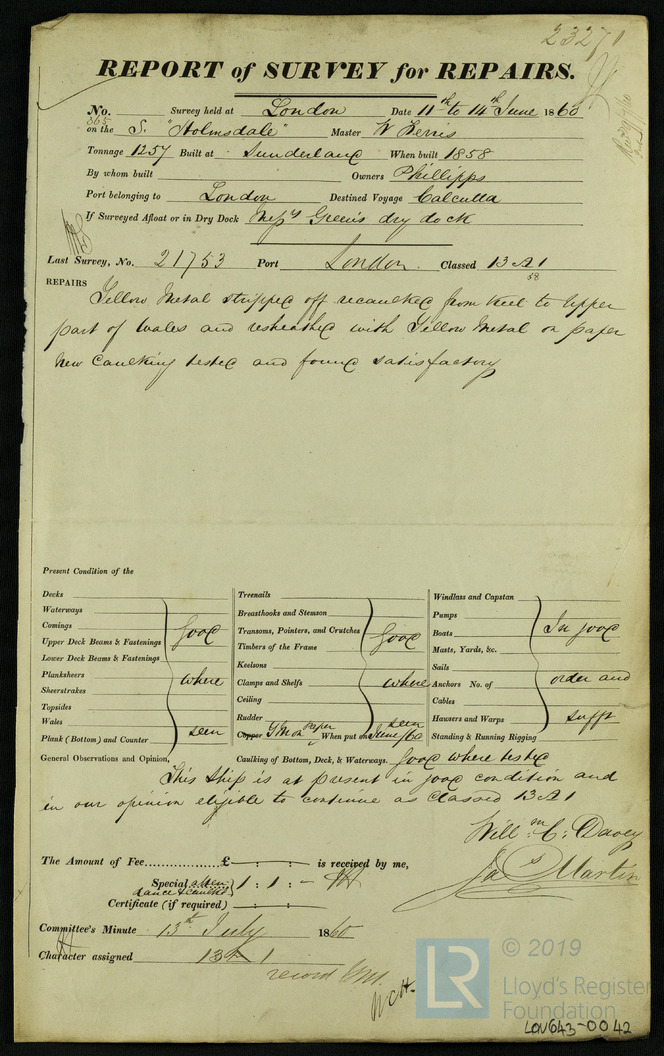 23271
REPORT of SURVEY for REPAIRS.
No. 365 Survey held at London Date 11th to 14th June 1860
on the S. "Holmsdale" Master W Ferris
Tonnage 1257 Built at Sunderland When built 1858
By whom built Owners Phillipps
Port belonging to London Destined Voyage Calcutta
If Surveyed Afloat or in Dry Dock Messrs Green's dry dock
Last Survey, No. 21753 Port London. Classed 13 A 1
58
REPAIRS Yellow Metal stripped off recaulked from Keel to Upper
part of Wales and resheathed with Yellow Metal on paper
New Caulking tested and found satisfactory
Present Condition of the
Decks
Waterways
Comings
Upper Deck Beams & Fastenings
Lower Deck Beams & Fastenings
Planksheers
Sheerstrakes
Topsides
Wales
Plank (Bottom) and Counter
Good
where
seen
Treenails
Breasthooks and Stemson
Transoms, Pointers, and Crutches
Timbers of the Frame
Keelsons
Clamps and Shelfs
Ceiling
Rudder
Good
where
seen
Copper YM on Paper When put on June /60
Windlass and Capstan
Pumps
Boats
Masts, Yards, &c.
Sails
Anchors No. of
Cables
Hausers and Warps
Standing & Running Rigging
In good
order and
sufft
General Observations and Opinion, Caulking of Bottom, Deck, & Waterways. Good where tested
This Ship is at present in good condition and
in our opinion eligible to continue as Classed 13 A 1
Willm. C. Davey
Jas Martin
The Amount of Fee............... £ : : is received by me,
Special atten
dance & caulking 1 : 1 : -
Certificate (if required) : :
Committee's Minute 13th July 1860
Character assigned 13 A 1
record YM.
WCH.
LR
© 2019
Lloyd's Register
Foundation
LON643-0042